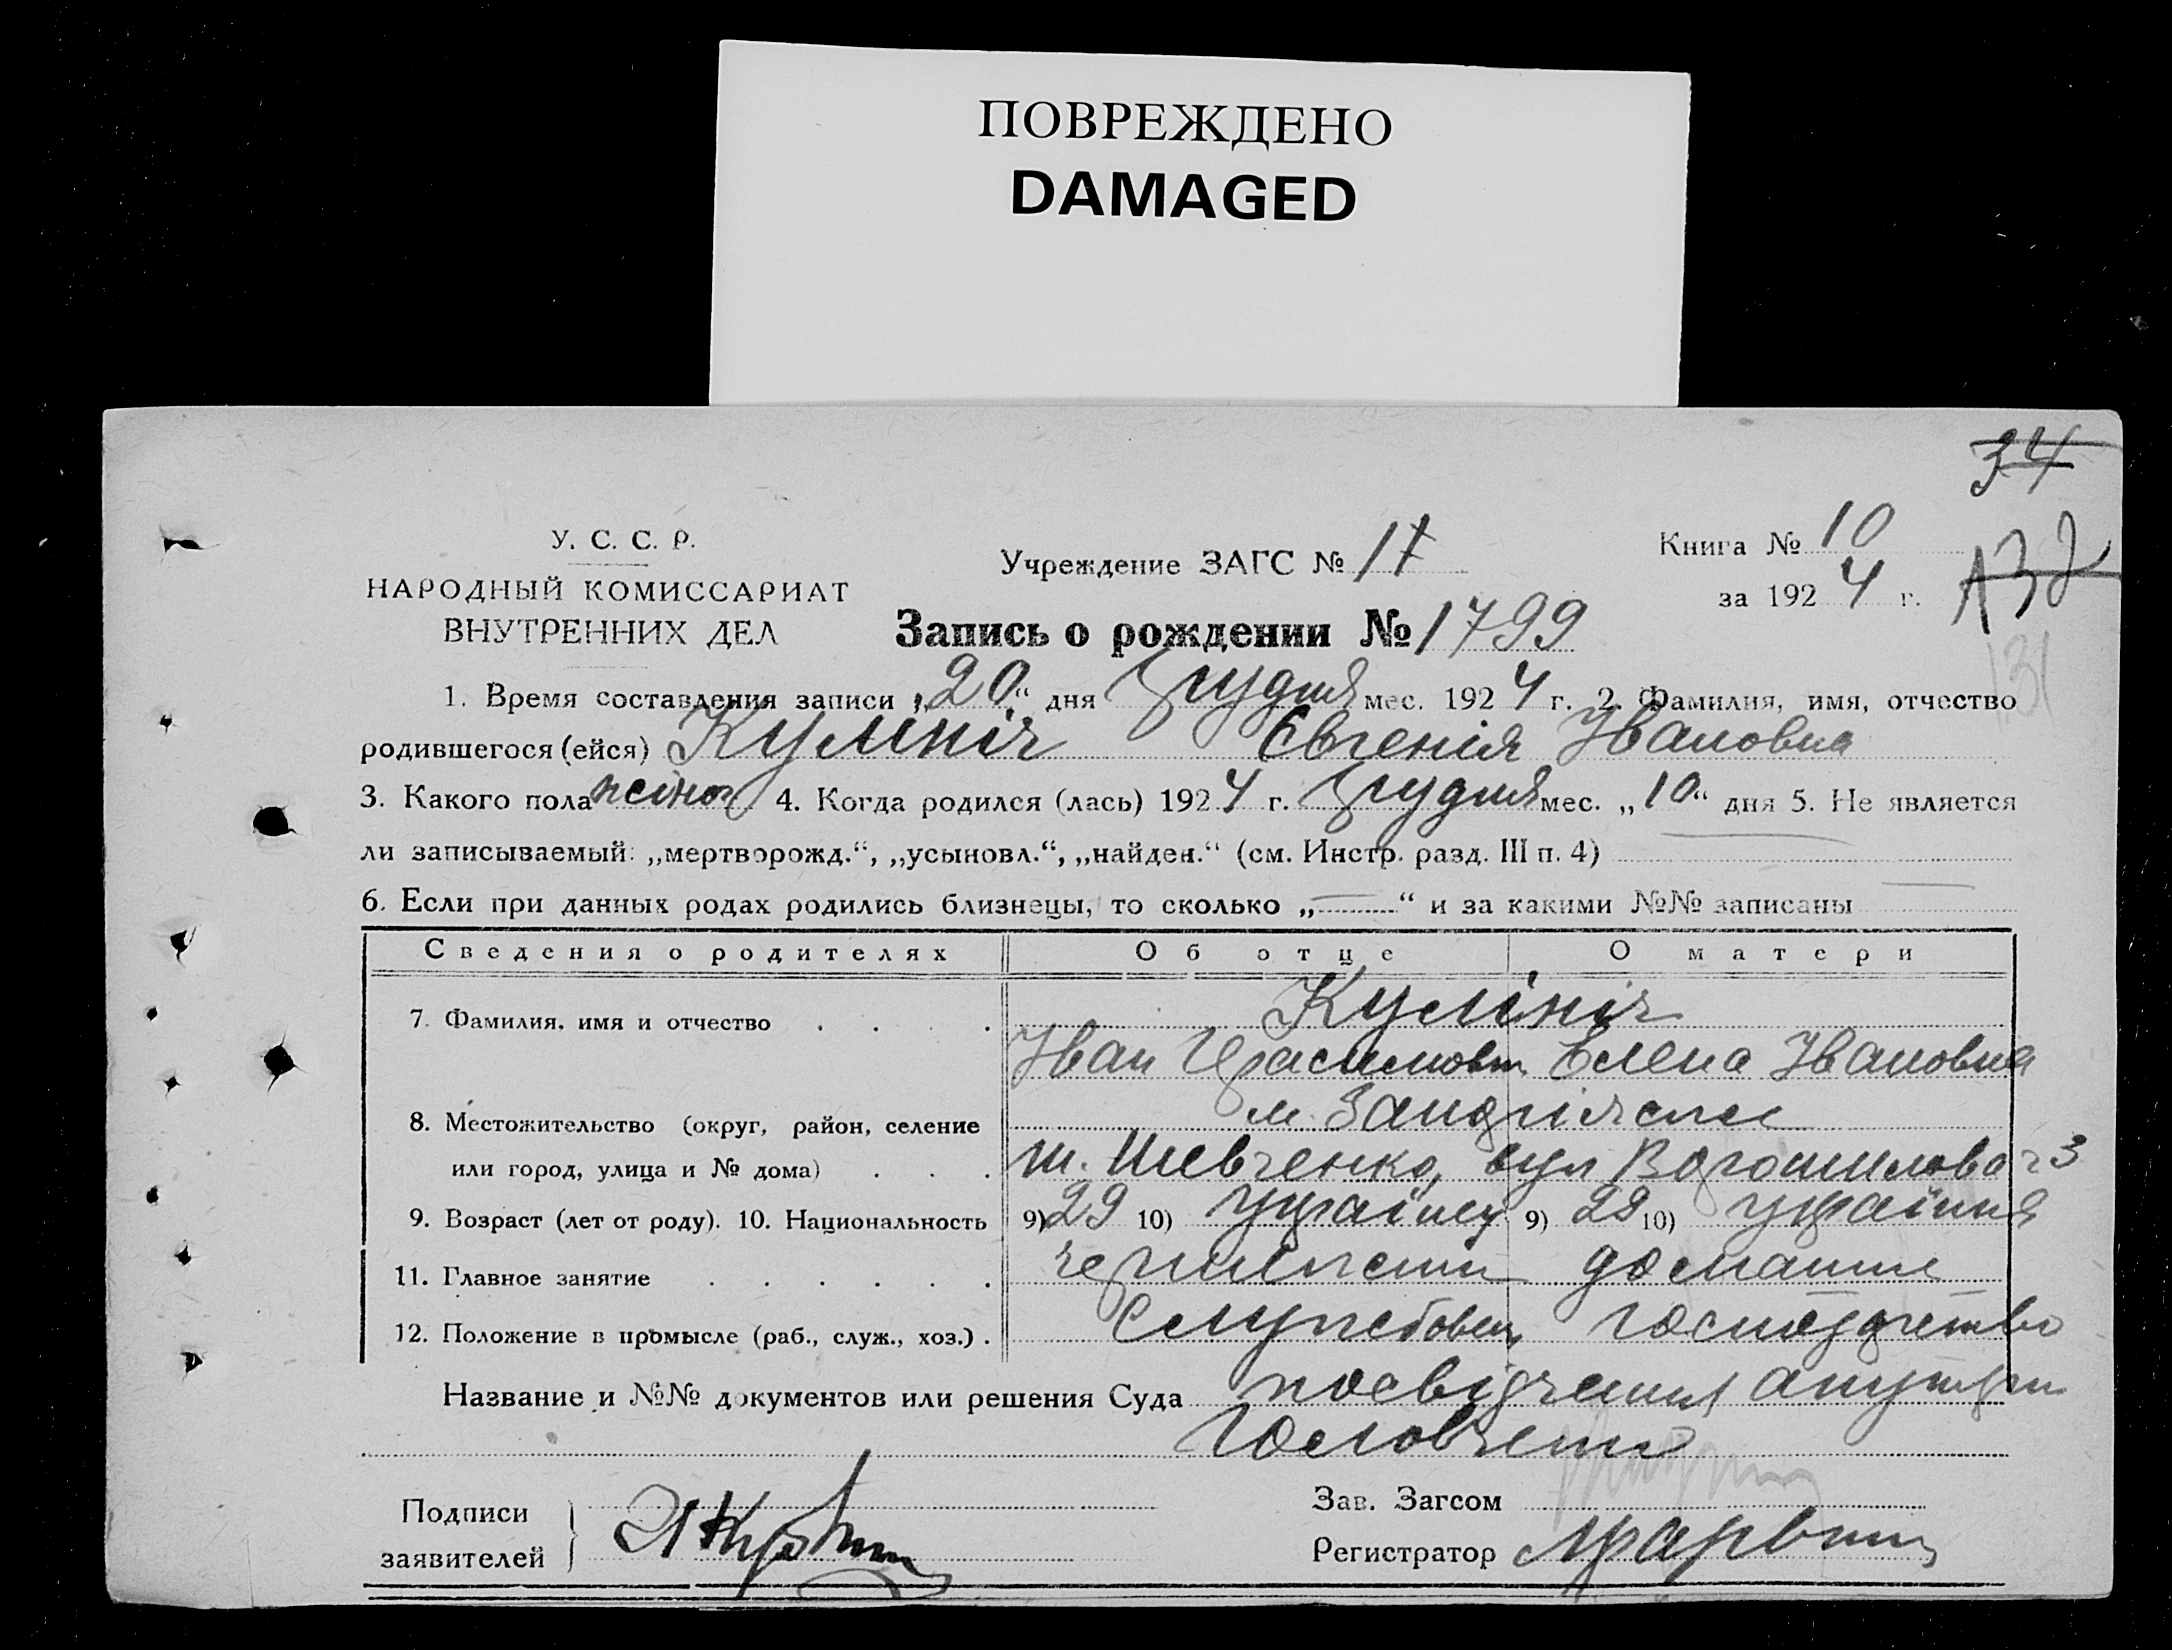 ПОВРЕЖДЕНО
DAMAGED
34
У. С. С. Р.
НАРОДНЫЙ КОМИССАРИАТ
ВНУТРЕННИХ ДЕЛ
Учреждение ЗАГС №
Книга № 10
за 192 4 г.
131
Запись о рождении № 1799
1. Время составления записи „20“ дня Грудня мес. 192 4 г. 2. Фамилия, имя, отчество
родившегося (ейся) Кулініч Євгенія Івановна
3. Какого пола жіноч 4. Когда родился (лась) 192 4 г. Грудня мес. „10“ дня 5. Не является
ли записываемый: „мертворожд.“, „усыновл.“, „найден.“ (см. Инстр. разд. III п. 4)
6. Если при данных родах родились близнецы, то сколько „—“ и за какими №№ записаны —
Сведения о родителях Об отце О матери
7. Фамилия, имя и отчество . . . . Кулініч
Іван Герасимович Елена Івановна
8. Местожительство (округ, район, селение
м.
или город, улица и № дома) . . . Шевченко, вул Ворошилова 3
9. Возраст (лет от роду). 10. Национальность 9) 29 10) українец 9) 29 10) україння
11. Главное занятие . . . . . . домашне
12. Положение в промысле (раб., служ., хоз.) . Служебовец господарство
Название и №№ документов или решения Суда посвідчення
Подписи
заявителей
Зав. Загсом
Регистратор